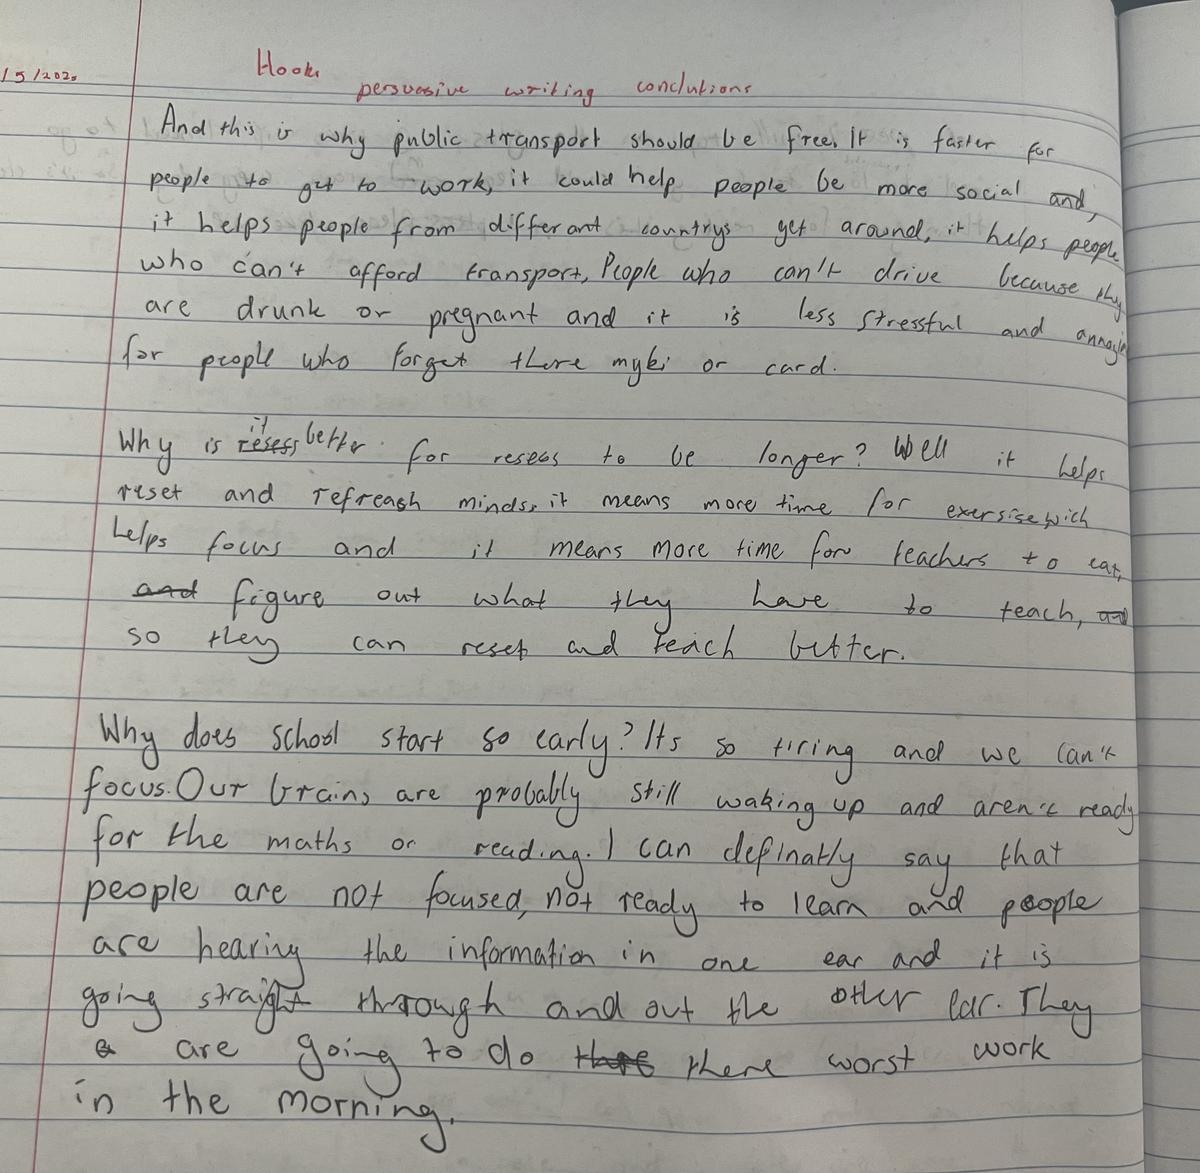 /5/202
Hook
persuasive writing conclutions
And this is why public transport should be free. It is faster for
people to get to work, it could help people be more social and,
it helps people from differant countrys get around, it helps people
who can't afford transport, People who can't drive because they
are drunk or pregnant and it is less stressful and
for people who forget there myki or card.
Why is resess it better for resess to be longer? Well it helps
reset and refreash minds, it means more time for exersise wich
helps focus and it means more time for teachers to eat,
and figure out what they have to teach, and
so they can reset and teach better.
Why does school start so early? Its so tiring and we can't
focus. Our brains are probably still waking up and aren't ready
for the maths or reading. I can definatly say that
people are not focused, not ready to learn and people
are hearing the information in one ear and it is
going straight through and out the other ear. They
are going to do there worst work
in the morning.